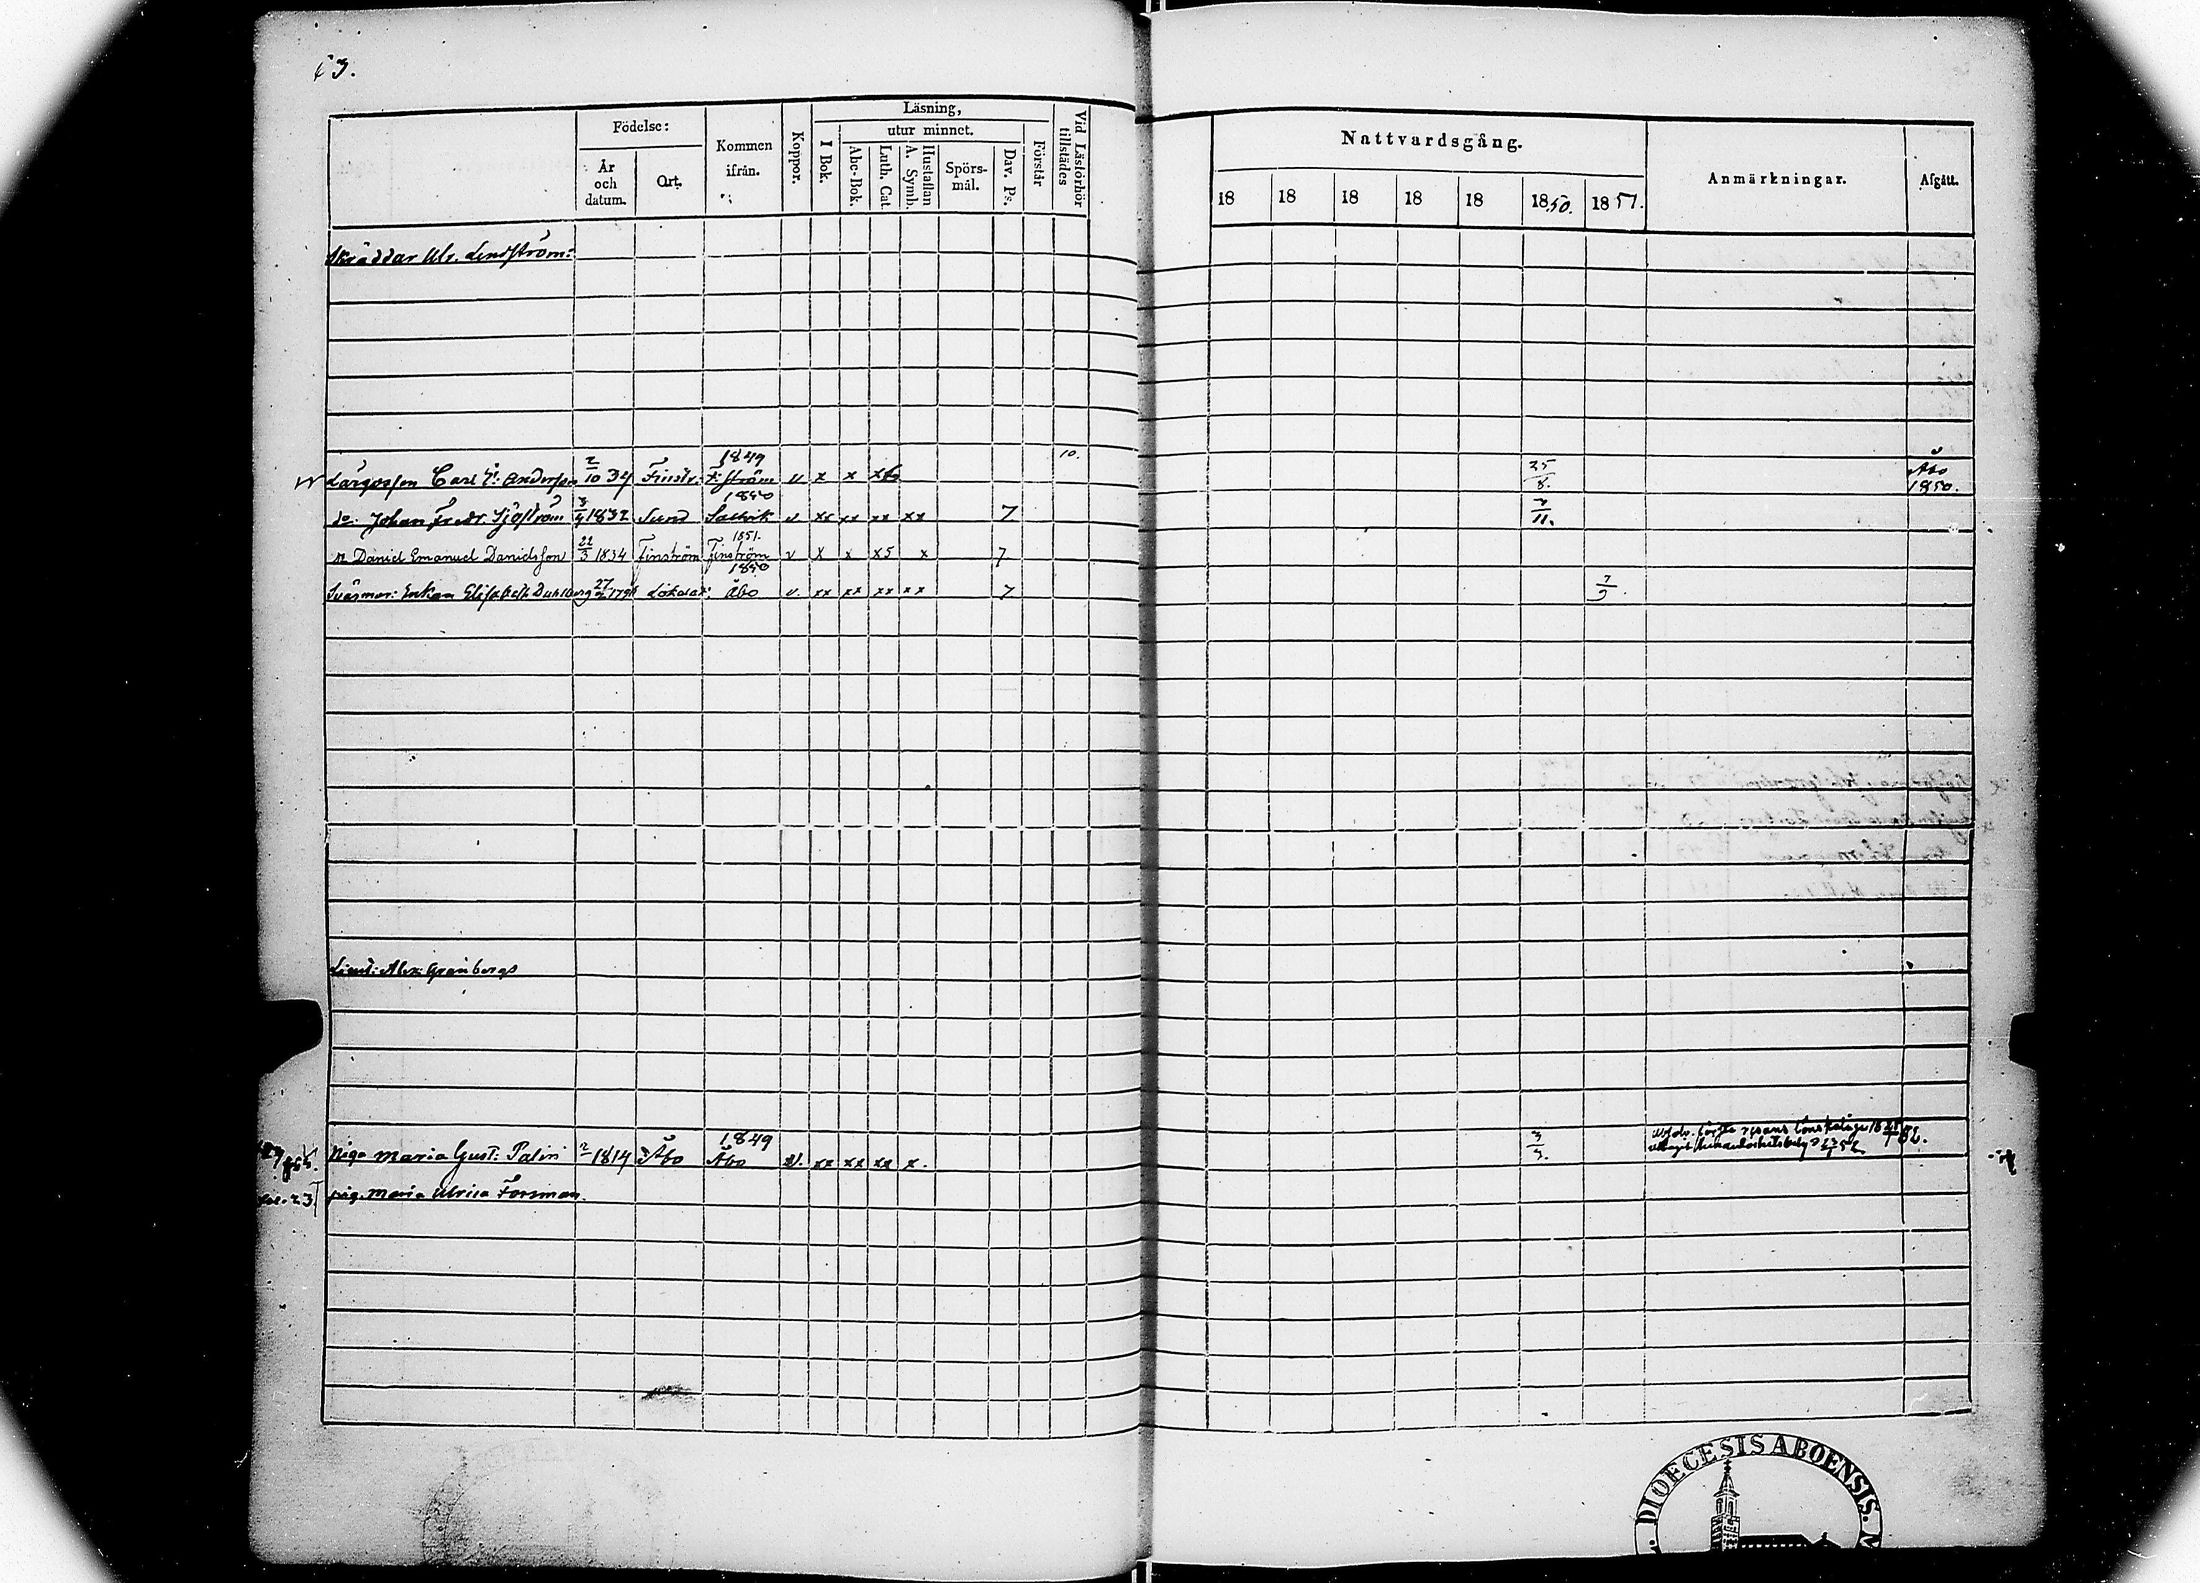 63.
Födelse:
År och datum.
Ort.
Kommen ifrån.
Koppor.
Läsning,
utur minnet.
I Bok.
Abc-Bok.
Luth. Cat.
A. Symb.
Hustaflan
Spörs-mål.
Dav. Ps.
Förstår
Vid Läsförhör tillstädes
Nattvardsgång.
18 18 18 18 18 1850. 1851.
Anmärkningar.
Afgått.
Skräddar Ulr. Lindström:
Lärgossen Carl Er. Andersson 2/10 34 Finstr: 1849 F:ström v x x x 10. 25/8. Åbo 1850.
do. Johan Fredr. Sjöström 1832 Sund 1850 Saltvik v xx xx xx xx 7 11.
Daniel Emanuel Danielsson 22/3 1834 Finström 1851. Finström v x x x5 x 7
Svärmor: Enkan Elisabeth Dahlberg 27 Lökalax: 1850 Åbo v. xx xx xx xx 7
Lieut: Alex: Granbergs
Piga Maria Gust: Palin 1814 Åbo 1849 Åbo v. xx xx xx x.
pig. Maria Ulrica Forsman.
DIOECESIS ABOENSIS.